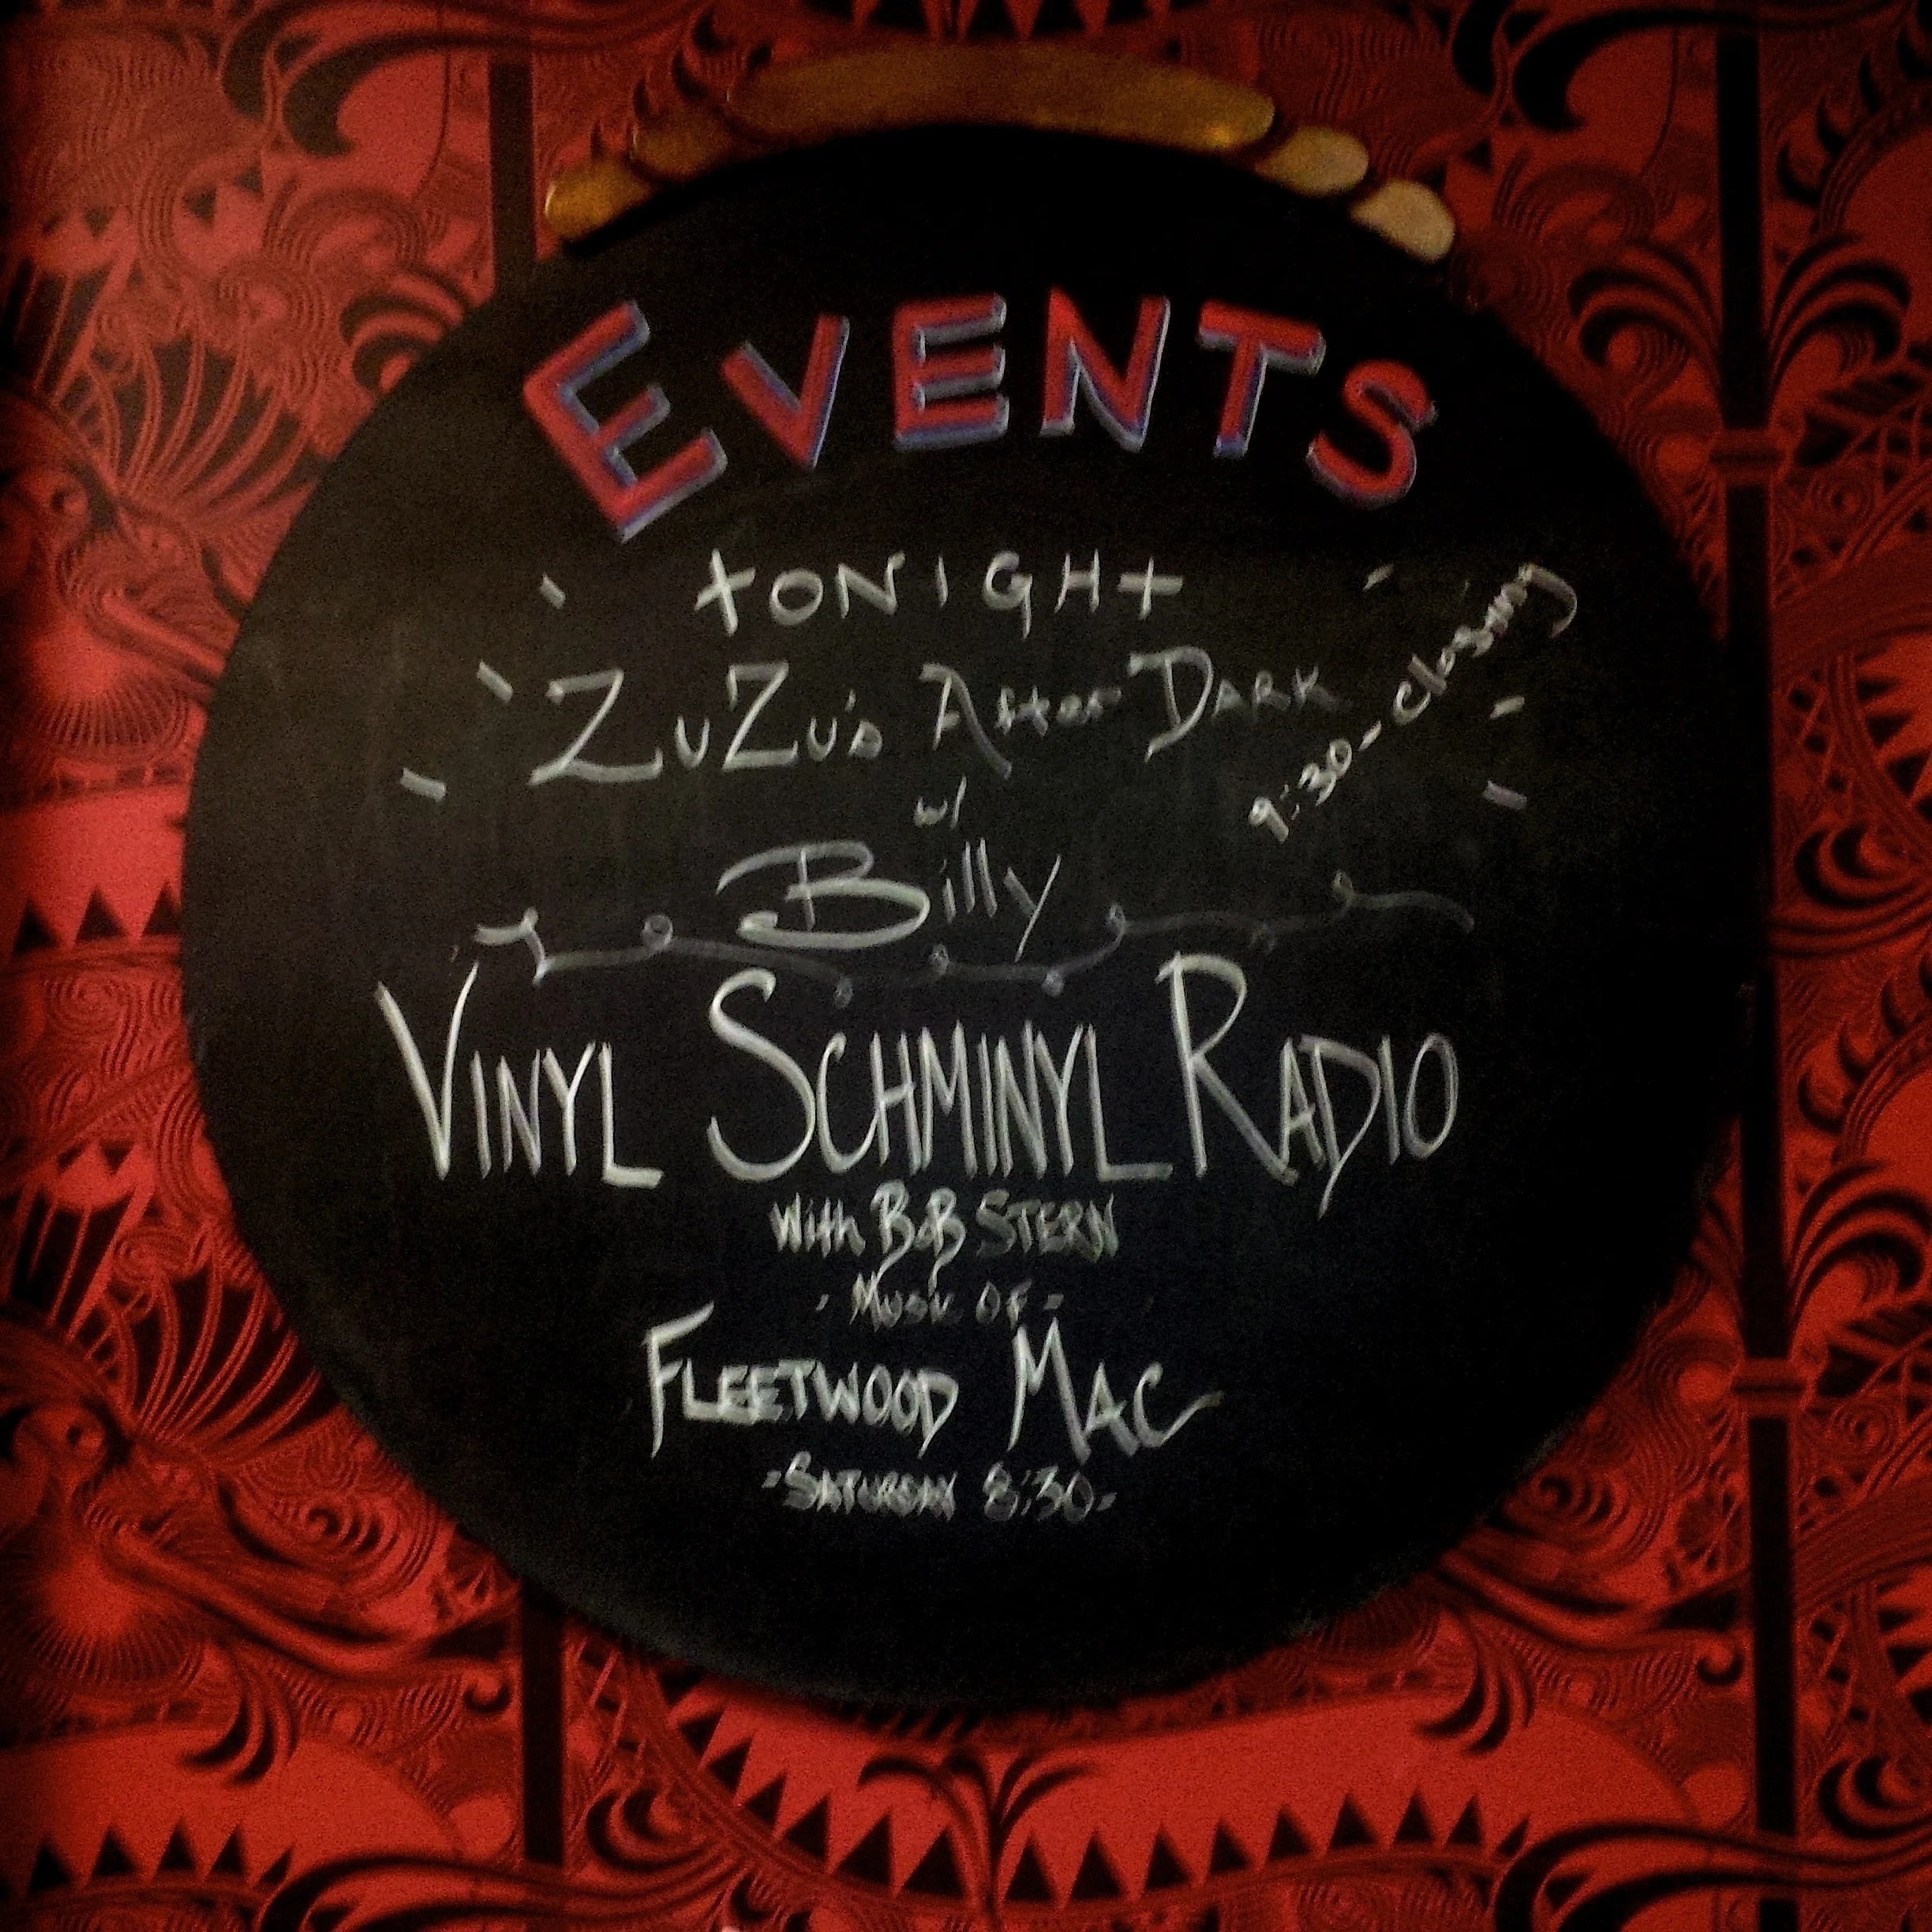 EVENTS
tONIGHt
ZuZu's After DARK
9:30 - closing
w/
Billy
VINYL SCHMINYL RADIO
With BOB STERN
- Music OF -
FLEETWOOD MAC
- SATURDAY 8:30 -